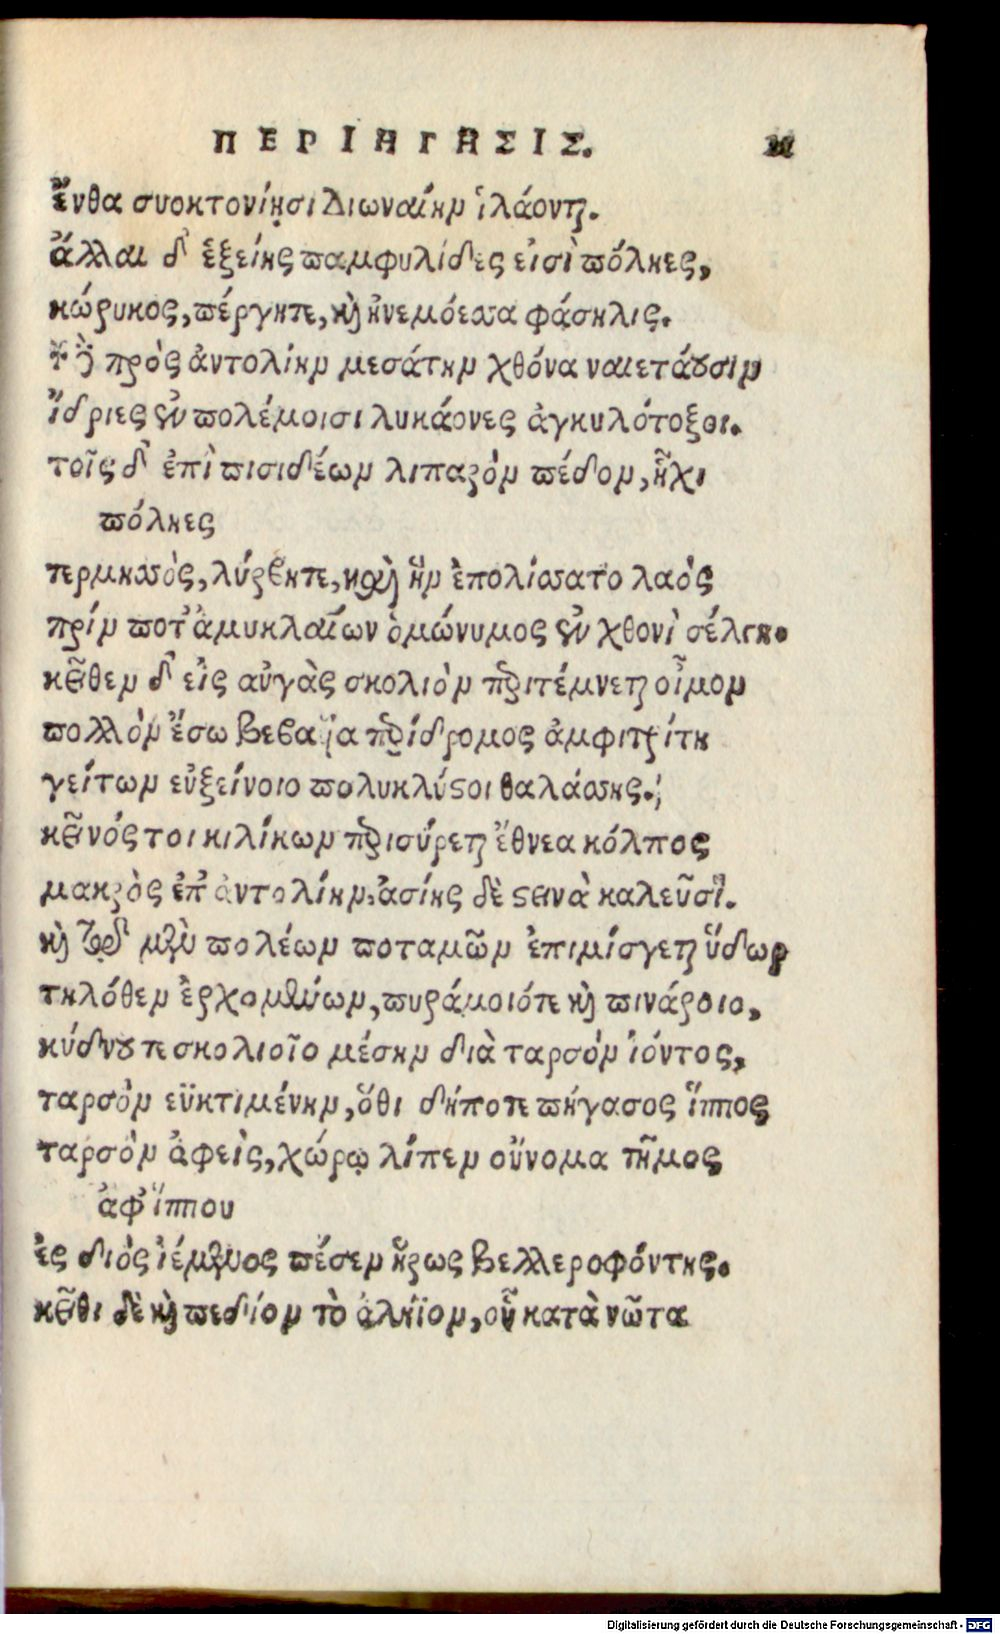 ΠΕΡΙΗΓΗΣΙΣ.
ἔνθα συοκτονίῃσι Διωναίην ἱλάονται.
ἄλλαι δ᾽ ἑξείης παμφυλίδες εἰσὶ πόληες,
κώρυκος, πέργητε, καὶ ἠνεμόεσσα φάσηλις.
τῶν πρὸς ἀντολίην μεσάτην χθόνα ναιετάουσιν
ἴδριες ἐν πολέμοισι λυκάονες ἀγκυλότοξοι.
τοῖς δ᾽ ἐπὶ πισιδέων λιπαρὸν πέδον, ἧχι
πόληες
τερμησσὸς, λύρβητε, καὶ ἣν ἐπολίσσατο λαὸς
πρίν ποτ᾽ ἀμυκλαίων ὁμώνυμος ἐν χθονὶ σέλγη.
κεῖθεν δ᾽ εἰς αὐγὰς σκολιὸν περιτέμνεται οἶμον
πολλὸν ἔσω βεβαυῖα περίδρομος ἀμφιτρίτη
γείτων εὐξείνοιο πολυκλύστοι θαλάσσης.
κεῖνός τοι κιλίκων περισύρεται ἔθνεα κόλπος
μακρὸς ἐπ᾽ ἀντολίην. ἀσίης δὲ στεινὰ καλεῦσι.
καὶ τῷ μὲν πολέων ποταμῶν ἐπιμίσγεται ὕδωρ
τηλόθεν ἐρχομένων, πυράμοιότε καὶ πινάροιο,
κύδνου τε σκολιοῖο μέσην διὰ ταρσὸν ἰόντος,
ταρσὸν εὐκτιμένην, ὅθι δήποτε πήγασος ἵππος
ταρσὸν ἀφεὶς, χώρῳ λίπεν οὔνομα τῆμος
ἀφ᾽ ἵππου
ἐς διὸς ἱέμενος πέσεν ἥρως βελλεροφόντης.
κεῖθι δὲ καὶ πεδίον τὸ ἀλήϊον, οὗ κατὰ νῶτα
Digitalisierung gefördert durch die Deutsche Forschungsgemeinschaft - DFG